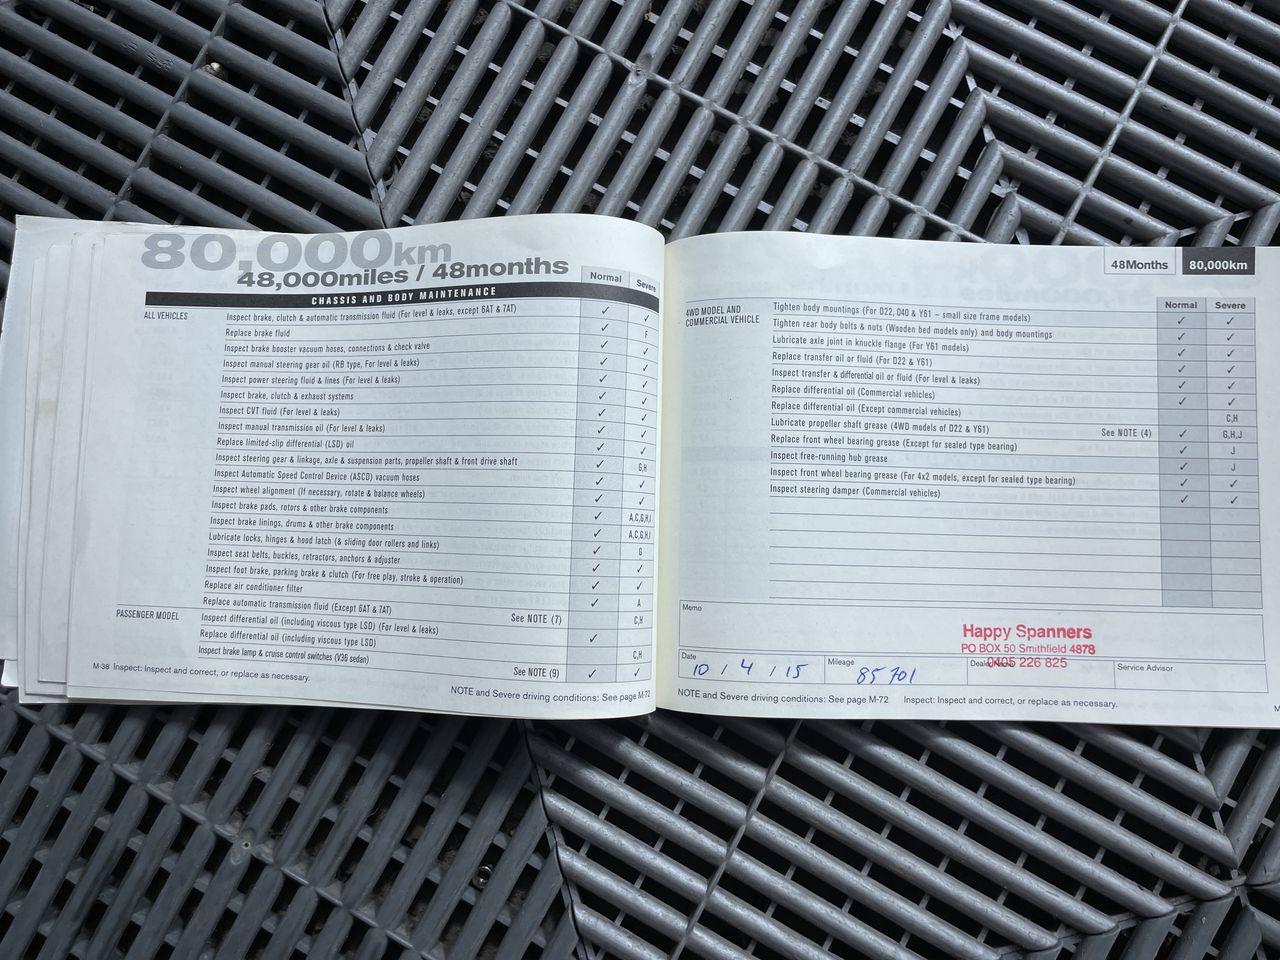 80,000km
48,000miles / 48months
Normal
Severe
CHASSIS AND BODY MAINTENANCE
ALL VEHICLES
Inspect brake, clutch & automatic transmission fluid (For level & leaks, except 6AT & 7AT) ✓ ✓
Replace brake fluid ✓ F
Inspect brake booster vacuum hoses, connections & check valve ✓ ✓
Inspect manual steering gear oil (RB type, For level & leaks) ✓ ✓
Inspect power steering fluid & lines (For level & leaks) ✓ ✓
Inspect brake, clutch & exhaust systems ✓ ✓
Inspect CVT fluid (For level & leaks) ✓ ✓
Inspect manual transmission oil (For level & leaks) ✓ ✓
Replace limited-slip differential (LSD) oil ✓ ✓
Inspect steering gear & linkage, axle & suspension parts, propeller shaft & front drive shaft ✓ G,H
Inspect Automatic Speed Control Device (ASCD) vacuum hoses ✓ ✓
Inspect wheel alignment (If necessary, rotate & balance wheels) ✓ ✓
Inspect brake pads, rotors & other brake components ✓ A,C,G,H,I
Inspect brake linings, drums & other brake components ✓ A,C,G,H,I
Lubricate locks, hinges & hood latch (& sliding door rollers and links) ✓ G
Inspect seat belts, buckles, retractors, anchors & adjuster ✓ ✓
Inspect foot brake, parking brake & clutch (For free play, stroke & operation) ✓ ✓
Replace air conditioner filter ✓ A
Replace automatic transmission fluid (Except 6AT & 7AT) See NOTE (7) C,H
PASSENGER MODEL
Inspect differential oil (including viscous type LSD) (For level & leaks) ✓
Replace differential oil (including viscous type LSD) C,H
Inspect brake lamp & cruise control switches (V36 sedan) See NOTE (9) ✓ ✓
M-38 Inspect: Inspect and correct, or replace as necessary.
NOTE and Severe driving conditions: See page M-72
48Months
80,000km
Normal
Severe
4WD MODEL AND
COMMERCIAL VEHICLE
Tighten body mountings (For D22, D40 & Y61 – small size frame models) ✓ ✓
Tighten rear body bolts & nuts (Wooden bed models only) and body mountings ✓ ✓
Lubricate axle joint in knuckle flange (For Y61 models) ✓ ✓
Replace transfer oil or fluid (For D22 & Y61) ✓ ✓
Inspect transfer & differential oil or fluid (For level & leaks) ✓ ✓
Replace differential oil (Commercial vehicles) ✓ ✓
Replace differential oil (Except commercial vehicles) C,H
Lubricate propeller shaft grease (4WD models of D22 & Y61) See NOTE (4) ✓ G,H,J
Replace front wheel bearing grease (Except for sealed type bearing) ✓ J
Inspect free-running hub grease ✓ J
Inspect front wheel bearing grease (For 4x2 models, except for sealed type bearing) ✓ ✓
Inspect steering damper (Commercial vehicles) ✓ ✓
Memo
Happy Spanners
PO BOX 50 Smithfield 4878
0405 226 825
Date
10 / 4 / 15
Mileage
85 701
Service Advisor
NOTE and Severe driving conditions: See page M-72 Inspect: Inspect and correct, or replace as necessary.